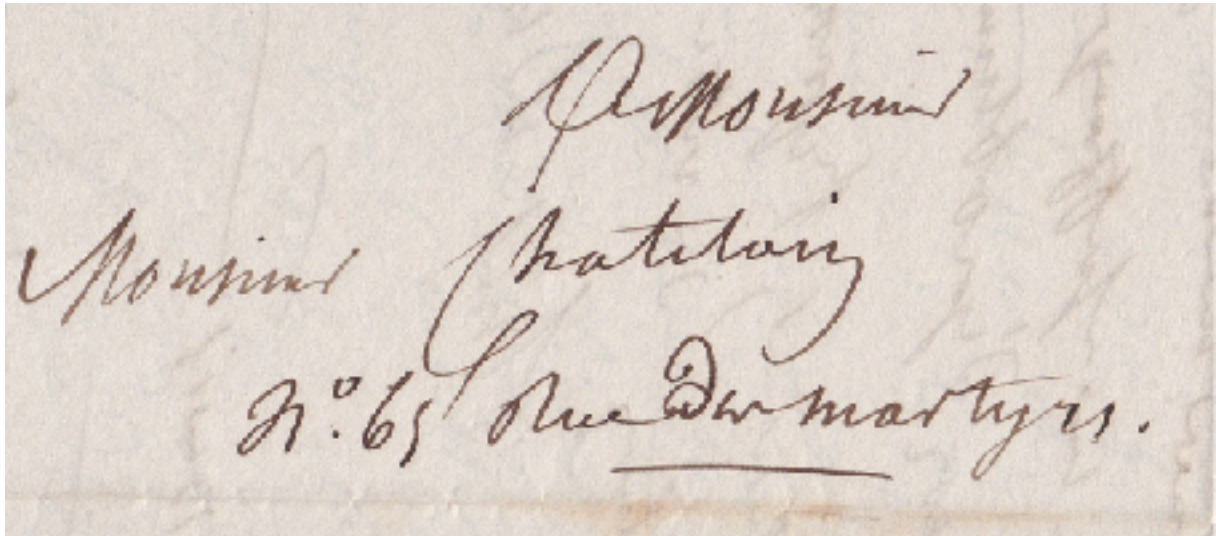 A Monsieur
Monsieur Chatelain
N°. 65 Rue des martyrs.